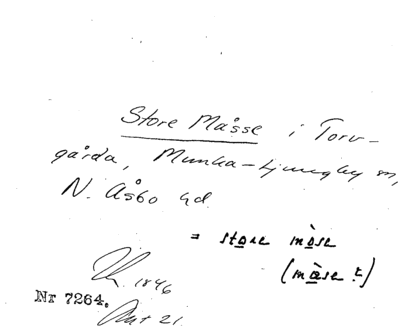 Store Måsse i Torv-
gårda, Munka-Ljungby sn,
N. Åsbo hd.
= store mòse
(mòse ?)
1846
Nr 7264.
21